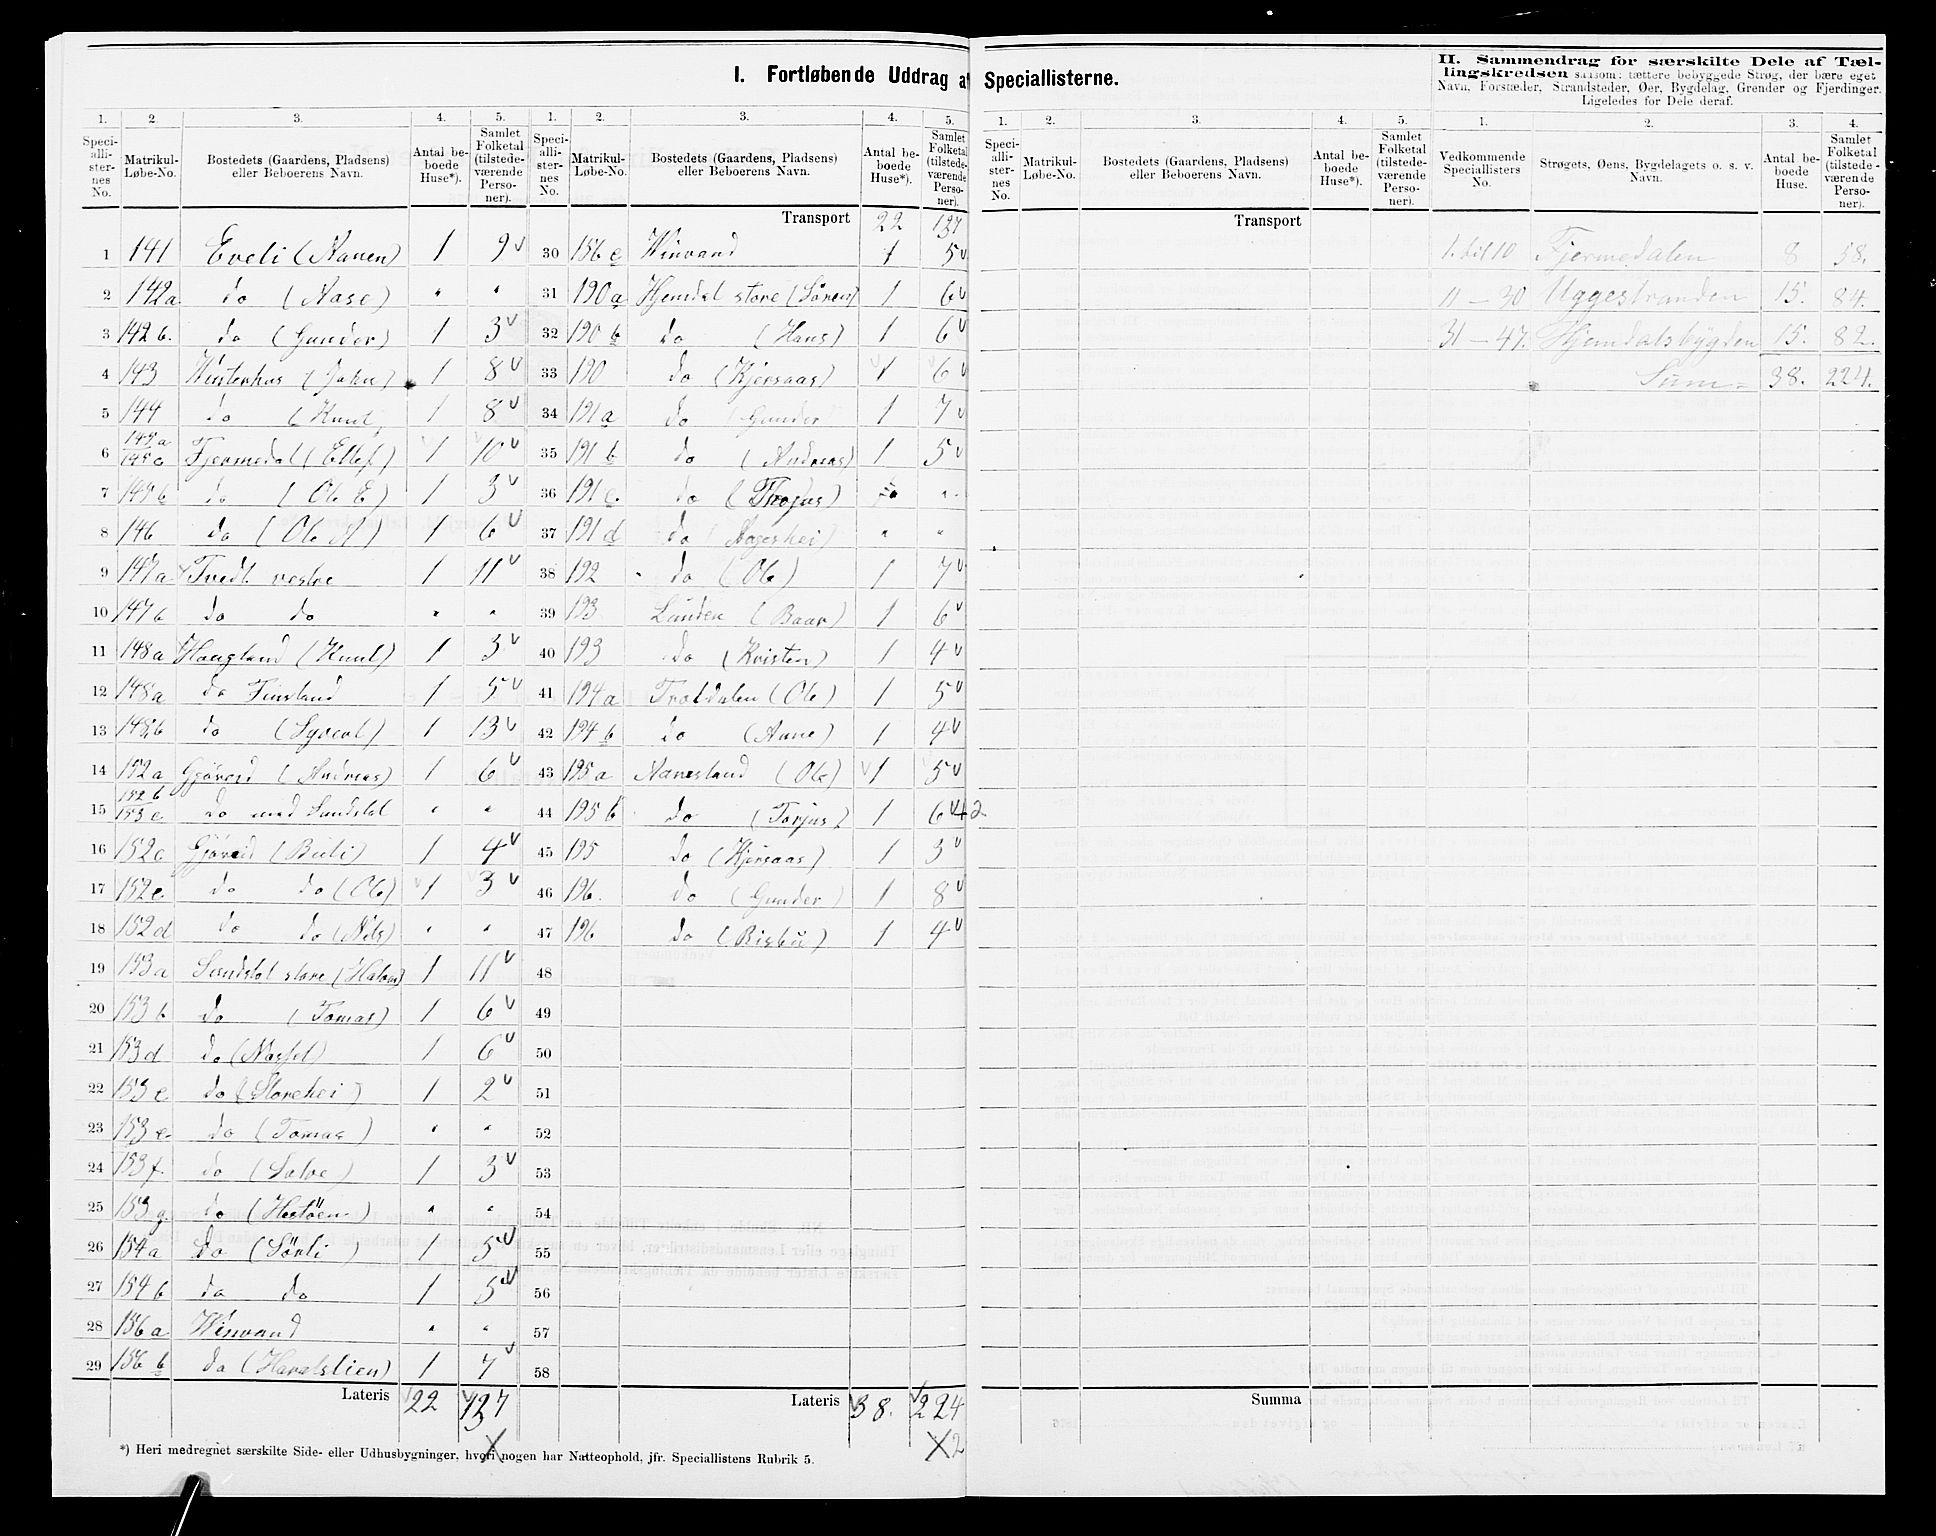 I. Fortløbende Uddrag af Speciallisterne.
II. Sammendrag for særskilte Dele af Tællingskredsen saasom: tættere bebyggede Strøg, der bære eget Navn, Forstæder, Strandsteder, Øer, Bygdelag, Grender og Fjerdinger. Ligeledes for Dele deraf.
1. 2. 3. 4. 5. 1. 2. 3. 4. 5. 1. 2. 3. 4. 5. 1. 2. 3. 4.
Speciallisternes No. Matrikul-Løbe-No. Bostedets (Gaardens, Pladsens) eller Beboerens Navn. Antal beboede Huse*). Samlet Folketal (tilstedeværende Personer).
Speciallisternes No. Matrikul-Løbe-No. Bostedets (Gaardens, Pladsens) eller Beboerens Navn. Antal beboede Huse*). Samlet Folketal (tilstedeværende Personer).
Speciallisternes No. Matrikul-Løbe-No. Bostedets (Gaardens, Pladsens) eller Beboerens Navn. Antal beboede Huse*). Samlet Folketal (tilstedeværende Personer).
Vedkommende Speciallisters No. Strøgets, Øens, Bygdelagets o. s. v. Navn. Antal beboede Huse. Samlet Folketal (tilstedeværende Personer).
1 141 Eveli (Nanen) 1 9
2 142a do (Aase) " "
3 142b. do (Gunder) 1 3
4 143 Winterhus (John) 1 8
5 144 do (Knut) 1 8
6 145a 145c Fjermedal (Ellef) 1 10
7 145b do (Ole E) 1 3
8 146 do (Ole A) 1 6
9 147a Tvedt vestre 1 11
10 147b do do " "
11 148a Haugland (Knut) 1 3
12 148a do Finsland 1 5
13 148b do (Syvert) 1 13
14 152a Gjöveid (Andreas) 1 6
15 152b 153c do med Sundstøl " "
16 152c Gjöveid (Berli) 1 4
17 152e do do (Ole) 1 3
18 152d do do (Nils) " "
19 153a Sundstøl store (Halvor) 1 11
20 153b do (Tomas) 1 6
21 153d do (Mossel) 1 6
22 153e do (Storehei) 1 2
23 153e. do (Tomas) " "
24 153f. do (Salve) 1 3
25 153g. do (Hestöen) " "
26 154a do (Sörli) 1 5
27 154b do do 1 5
28 156a Winvand " "
29 156b do (Haralslien) 1 7
Lateris 22 137
Transport 22 137
30 156c Winvand 1 5
31 190a Hjemdal store (Sören) 1 6
32 190b do (Hans) 1 6
33 190 do (Kjersaas) 1 6
34 191a do (Gunder 1 7
35 191b do (Andreas) 1 5
36 191c. do (Thorjus) " "
37 191d do (Aageshei) " "
38 192 do (Ole) 1 7
39 193 Lunden (Baar) 1 6
40 193 do (Kristen) 1 4
41 194a Troldalen (Ole) 1 5
42 194b do (Anne) 1 4
43 195a Aanesland (Ole) 1 5
44 195b do (Torjus) 1 6 + 2
45 195 do (Kjersaas) 1 3
46 196. do (Gunder) 1 8
47 196 do (Bisbu) 1 4
48
49
50
51
52
53
54
55
56
57
58
Lateris 38. 224
2
Transport
Summa
1. til 10 Fjermedalen 8 58.
11 — 30 Uggestranden 15. 84.
31 — 47. Hjemdalsbygden 15. 82.
Sum = 38. 224.
*) Heri medregnet særskilte Side- eller Udhusbygninger, hvori nogen har Natteophold, jfr. Speciallistens Rubrik 5.